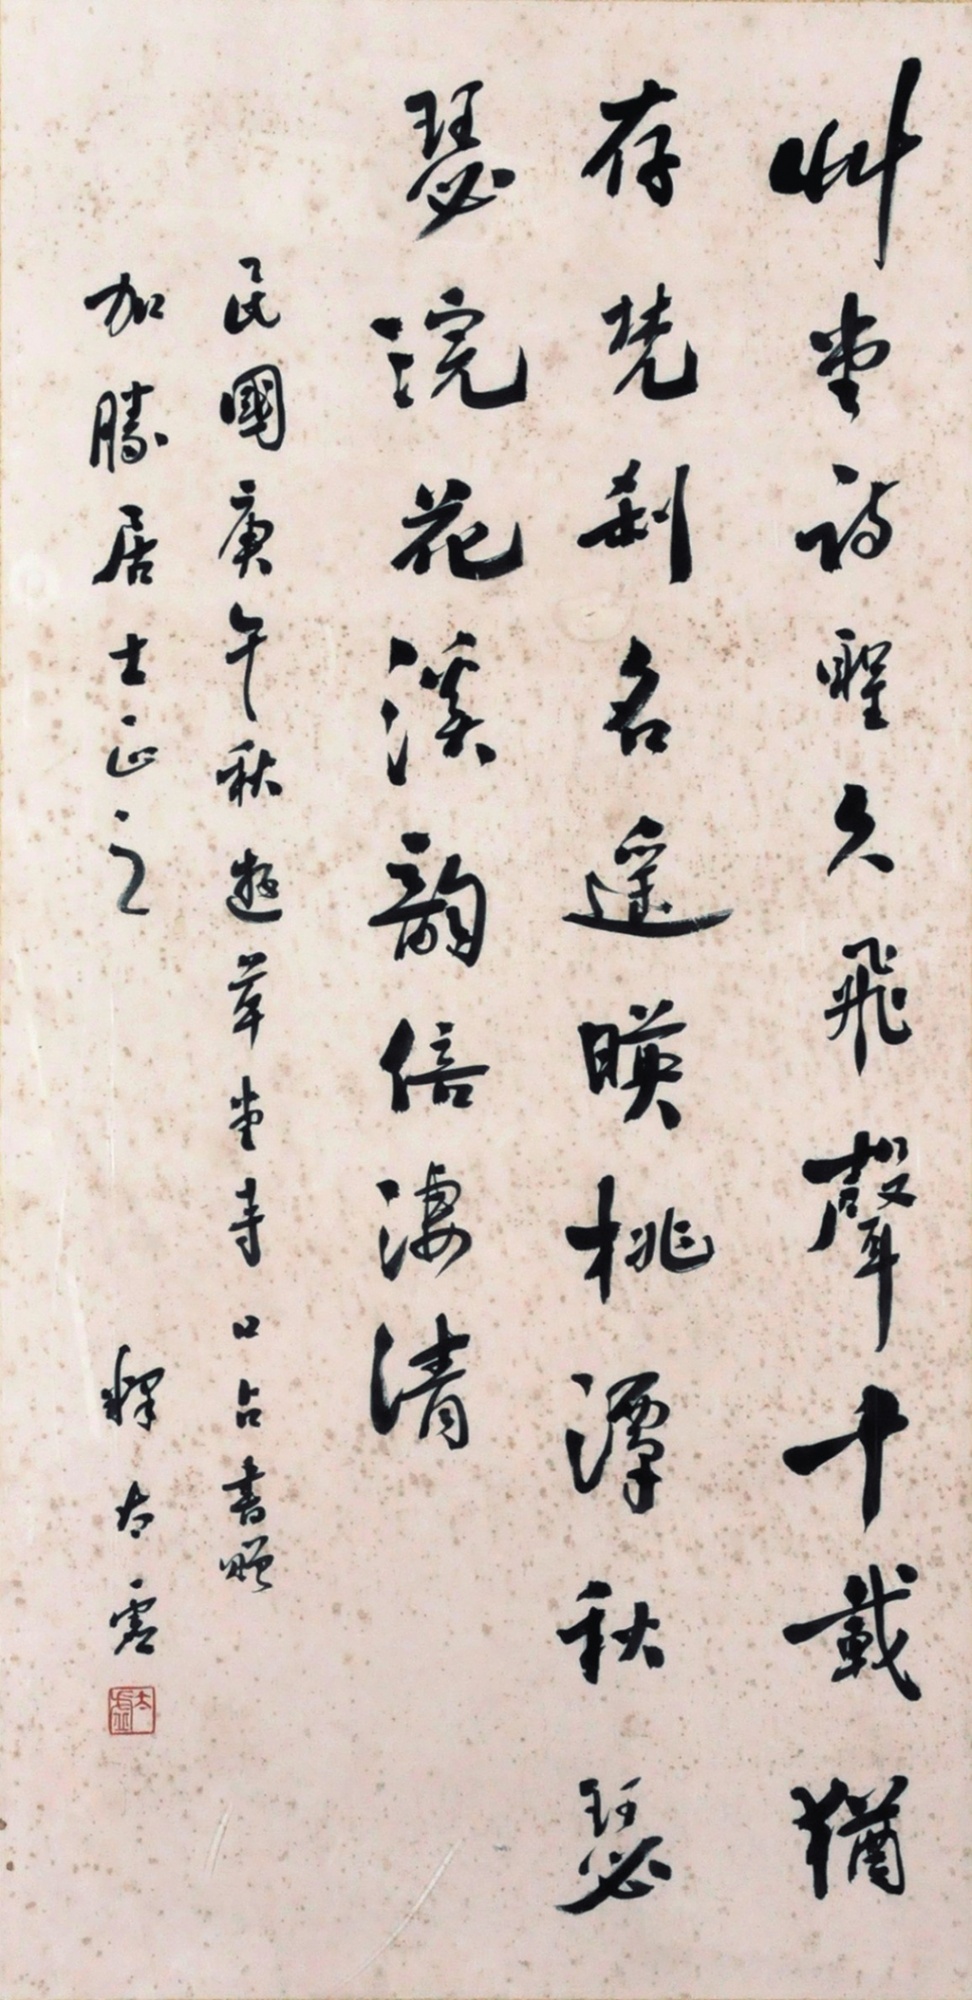 艸堂詩聖久飛聲千載猶
存梵刹名遥暎桃潭秋瑟
瑟浣花溪韻倍淒清
民國庚午秋遊草堂寺口占書贈
加勝居士正之
釋太虛
太虛